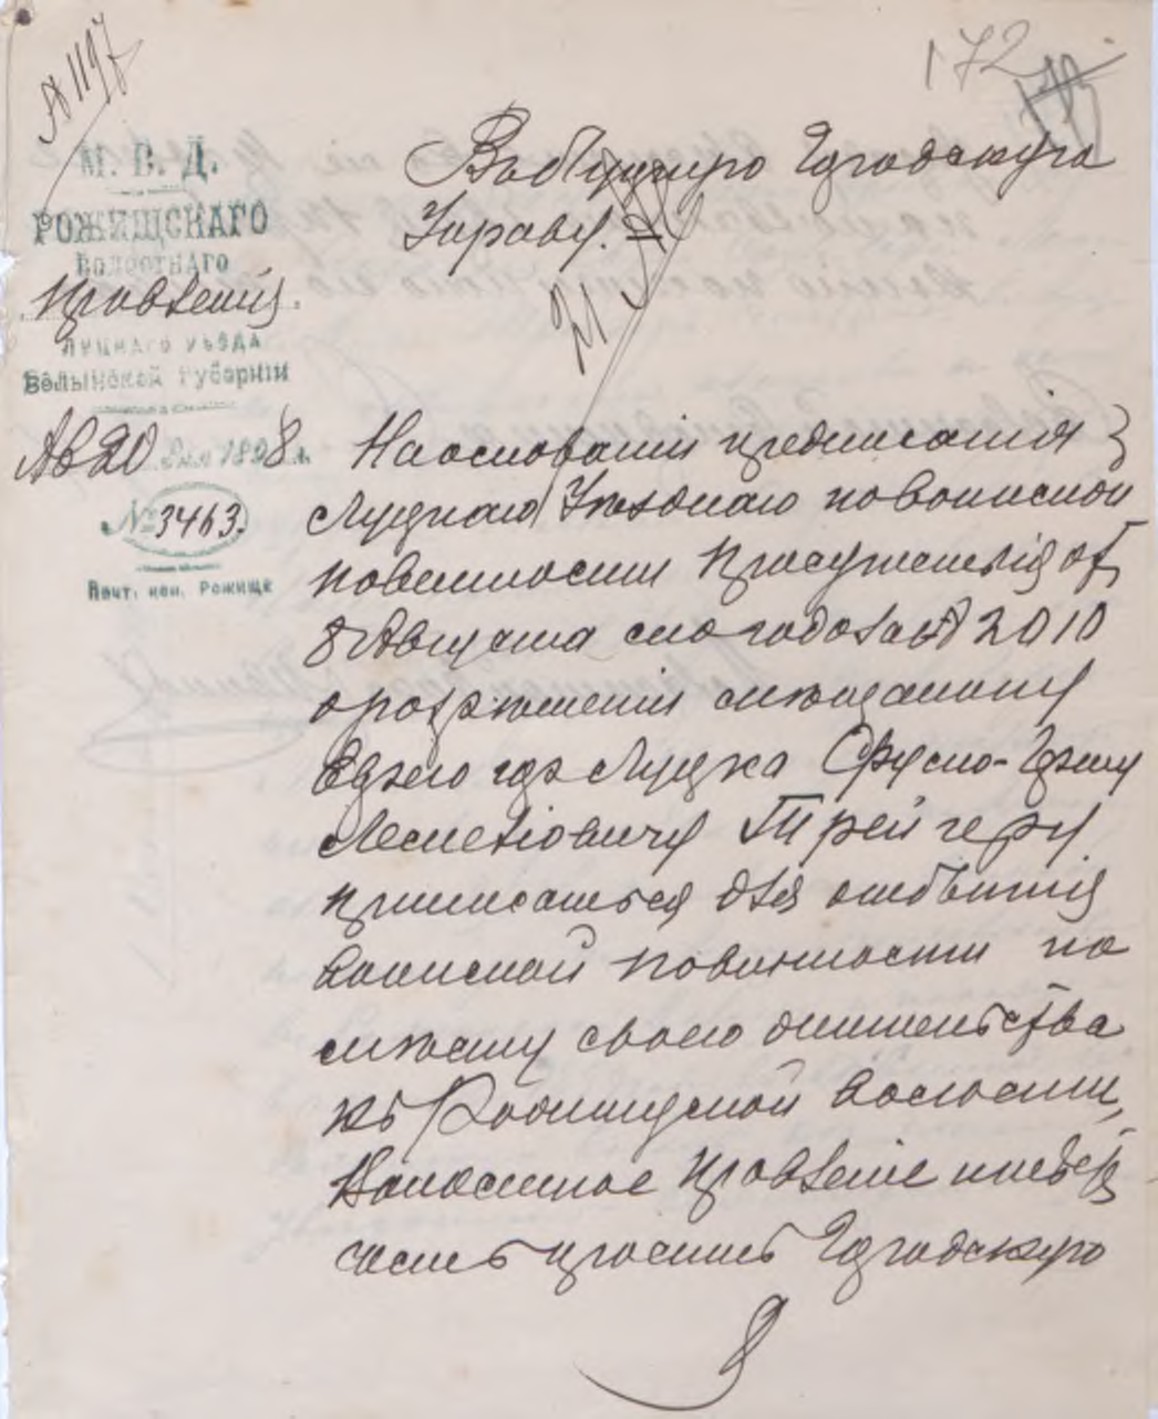 № 1197
172
М. В. Д.
РОЖИЩСКАГО
ВОЛОСТНАГО
Правленія
ЛУЦКАГО УѢЗДА
Волынской Губерніи
Авг 20 дня 1898 г.
№ 3463.
Почт. кон. Рожище
Въ Луцкую Городскую
Управу.
21
На основаніи предписанія
Луцкаго Уѣзднаго по воинской
повинности Присутствія отъ
8 Августа сего года за № 2010
о разрѣшеніи мѣщанину
города Луцка Сруло-Герш
Трейгеру
приписаться для отбытія
воинской повинности по
мѣсту своего жительства
къ Рожищской волости,
Волостное Правленіе имѣетъ
честь просить Городскую